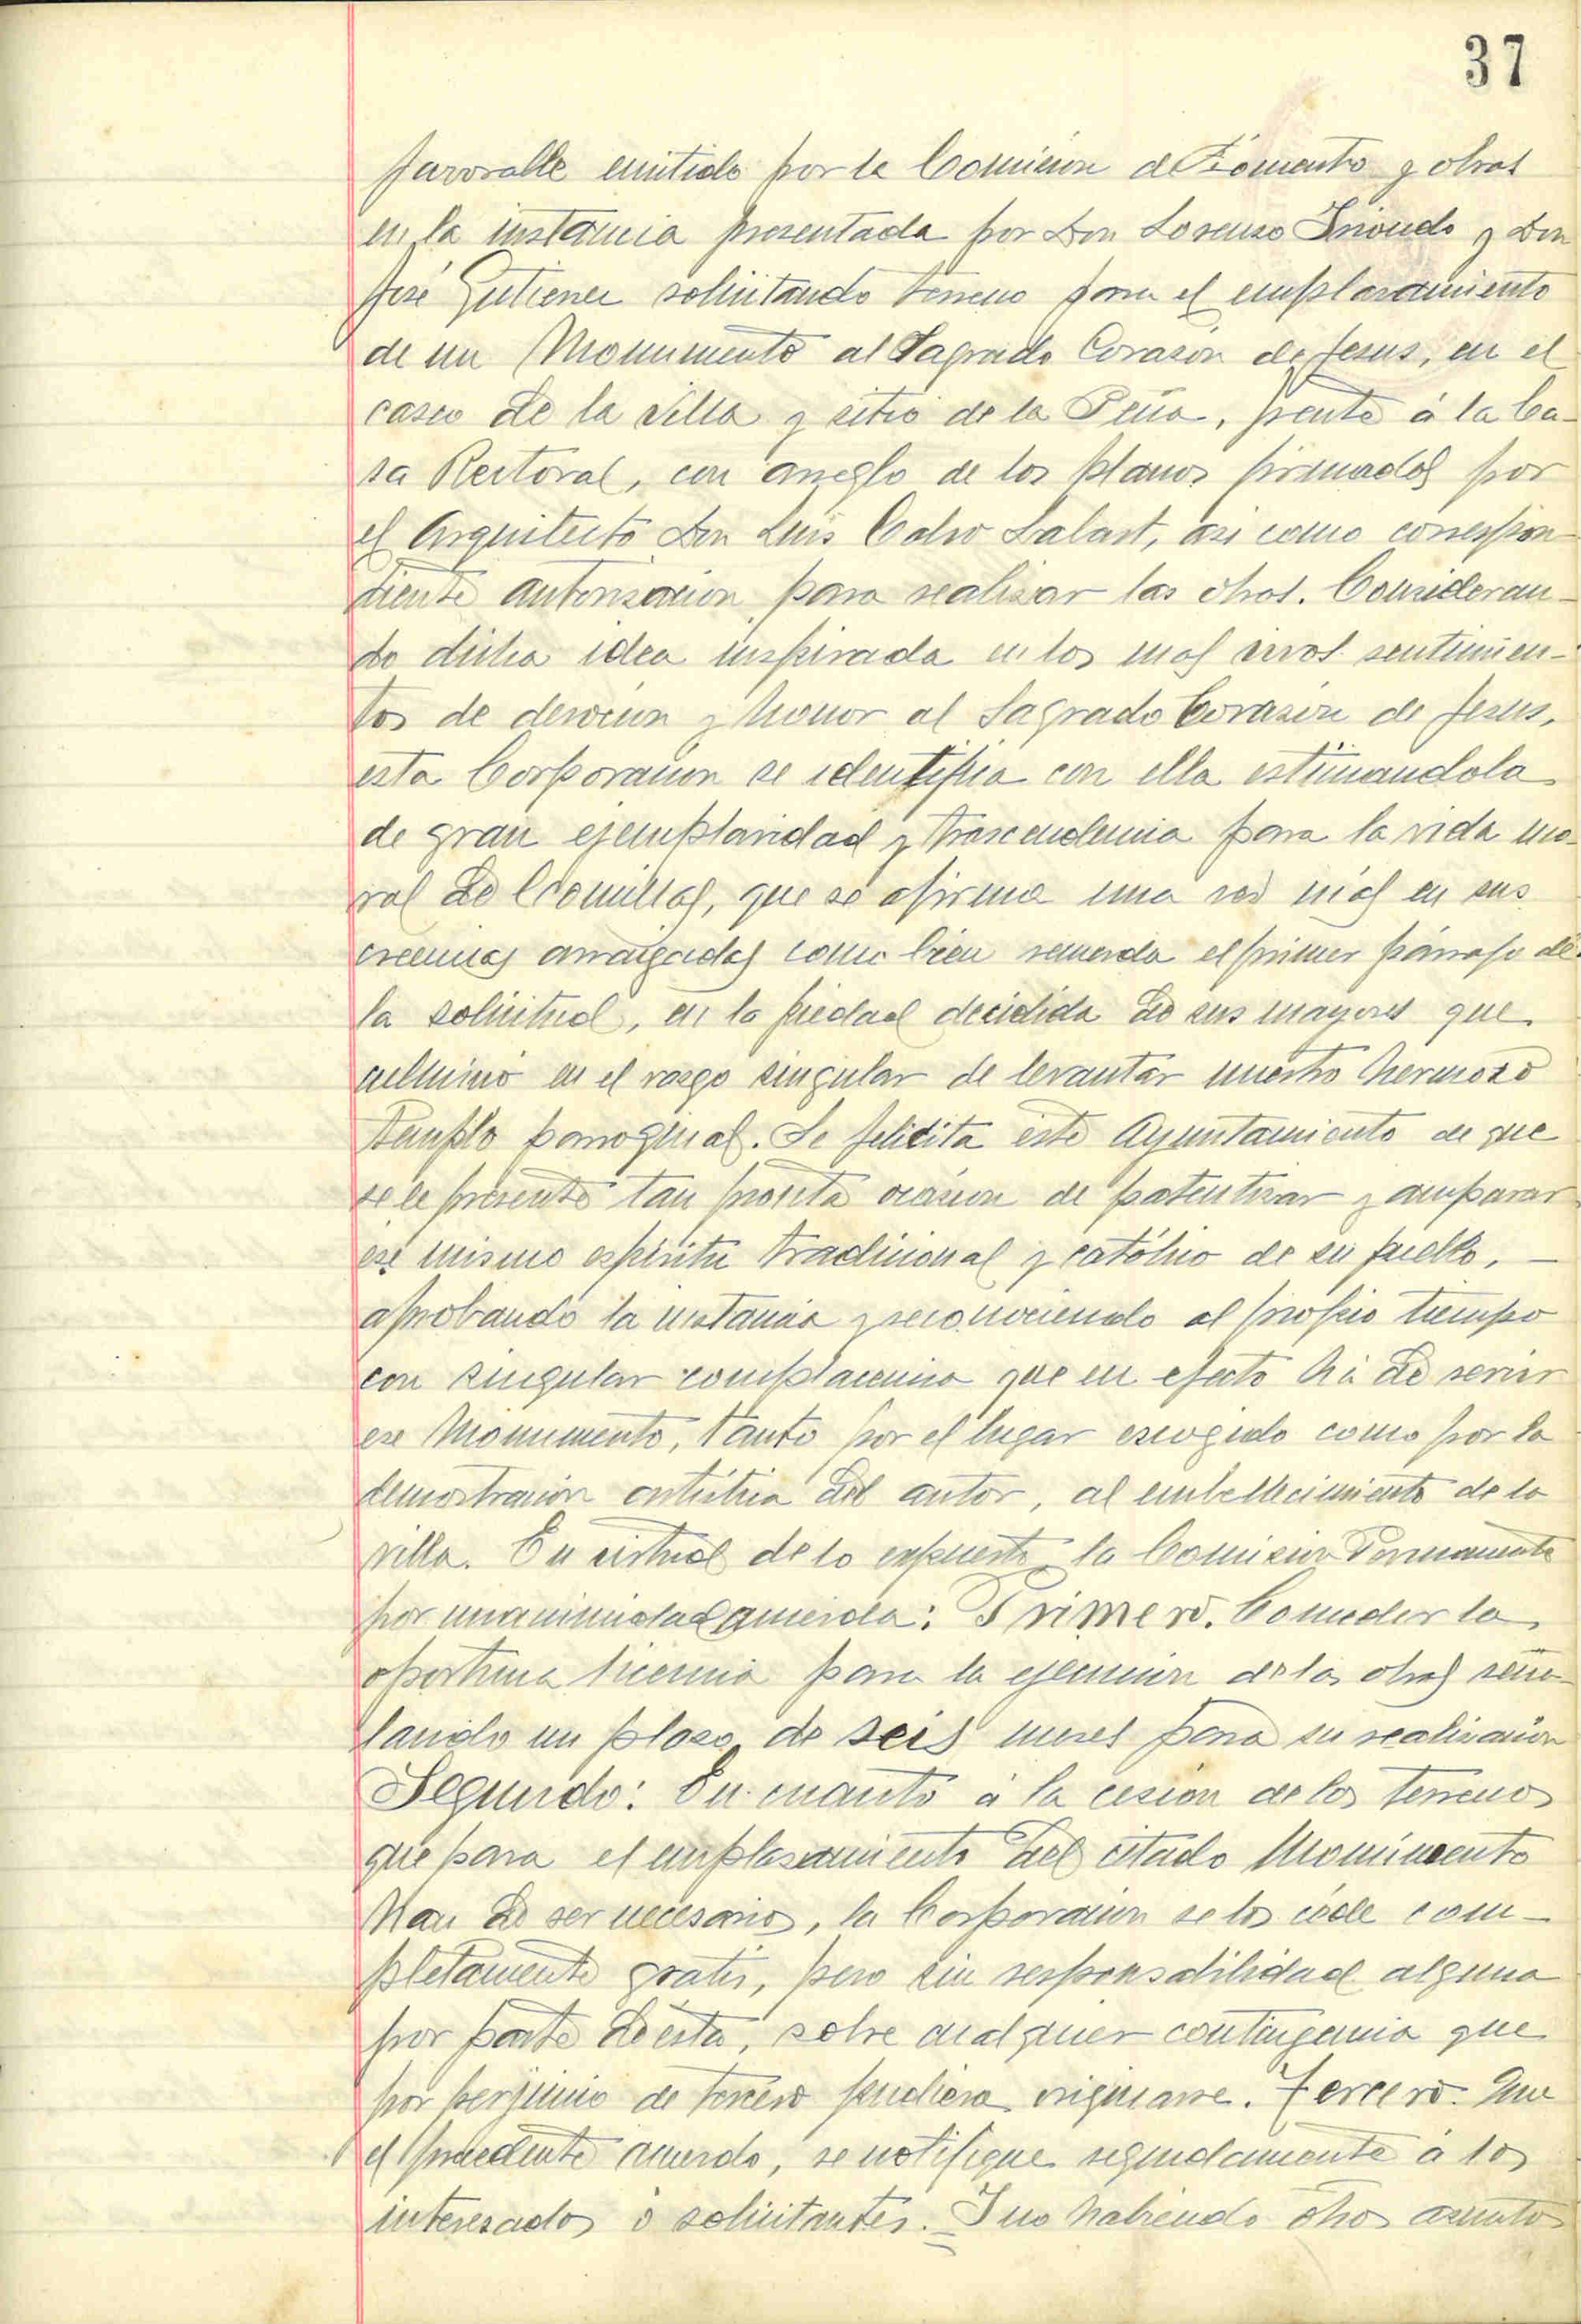 37
favorable emitido por la Comisión de Fomento y obras
en la instancia presentada por Don Lorenzo Iriondo y Don
José Gutierrez solicitando terreno para el emplazamiento
de un Monumento al Sagrado Corazón de Jesus, en el
casco de la villa y sitio de la Peña, frente á la Ca-
sa Rectoral, con arreglo de los planos firmados por
el Arquitecto Don Luis Calvo Salast, asi como correspon-
diente autorización para realizar las obras. Consideran-
do dicha idea inspirada en los mas vivos sentimien-
tos de devoción y honor al Sagrado Corazón de Jesus,
esta Corporación se identifica con ella estimandola
de gran ejemplaridad y trascendencia para la vida mo-
ral de Comillas, que se afirma una vez más en sus
creencias arraigadas como bien recuerda el primer párrafo de
la solicitud, en la piedad decidida de sus mayores que
culminó en el rasgo singular de levantar nuestro hermoso
Templo parroquial. Se felicita este Ayuntamiento de que
se le presente tan pronta ocasión de patentizar y amparar
ese mismo espíritu tradicional y católico de su pueblo,
aprobando la instancia y reconociendo al propio tiempo
con singular complacencia que en efecto há de servir
ese Monumento, tanto por el lugar escogido como por la
demostración artística del autor, al embellecimiento de la
villa. En virtud de lo expuesto, la Comisión Permanente
por unanimidad acuerda: Primero. Conceder la
oportuna licencia para la ejecución de las obras seña-
lando un plazo de seis meses para su realización
Segundo: En cuanto á la cesión de los terrenos
que para el emplazamiento del citado Monumento
han de ser necesarios, la Corporación se los cede com-
pletamente gratis, pero sin responsabilidad alguna
por parte de ésta, sobre cualquier contingencia que
por perjuicio de tercero pudiera originarse. Tercero. Que
el precedente acuerdo, se notifique seguidamente á los
interesados ó solicitantes. Y no habiendo otros asuntos